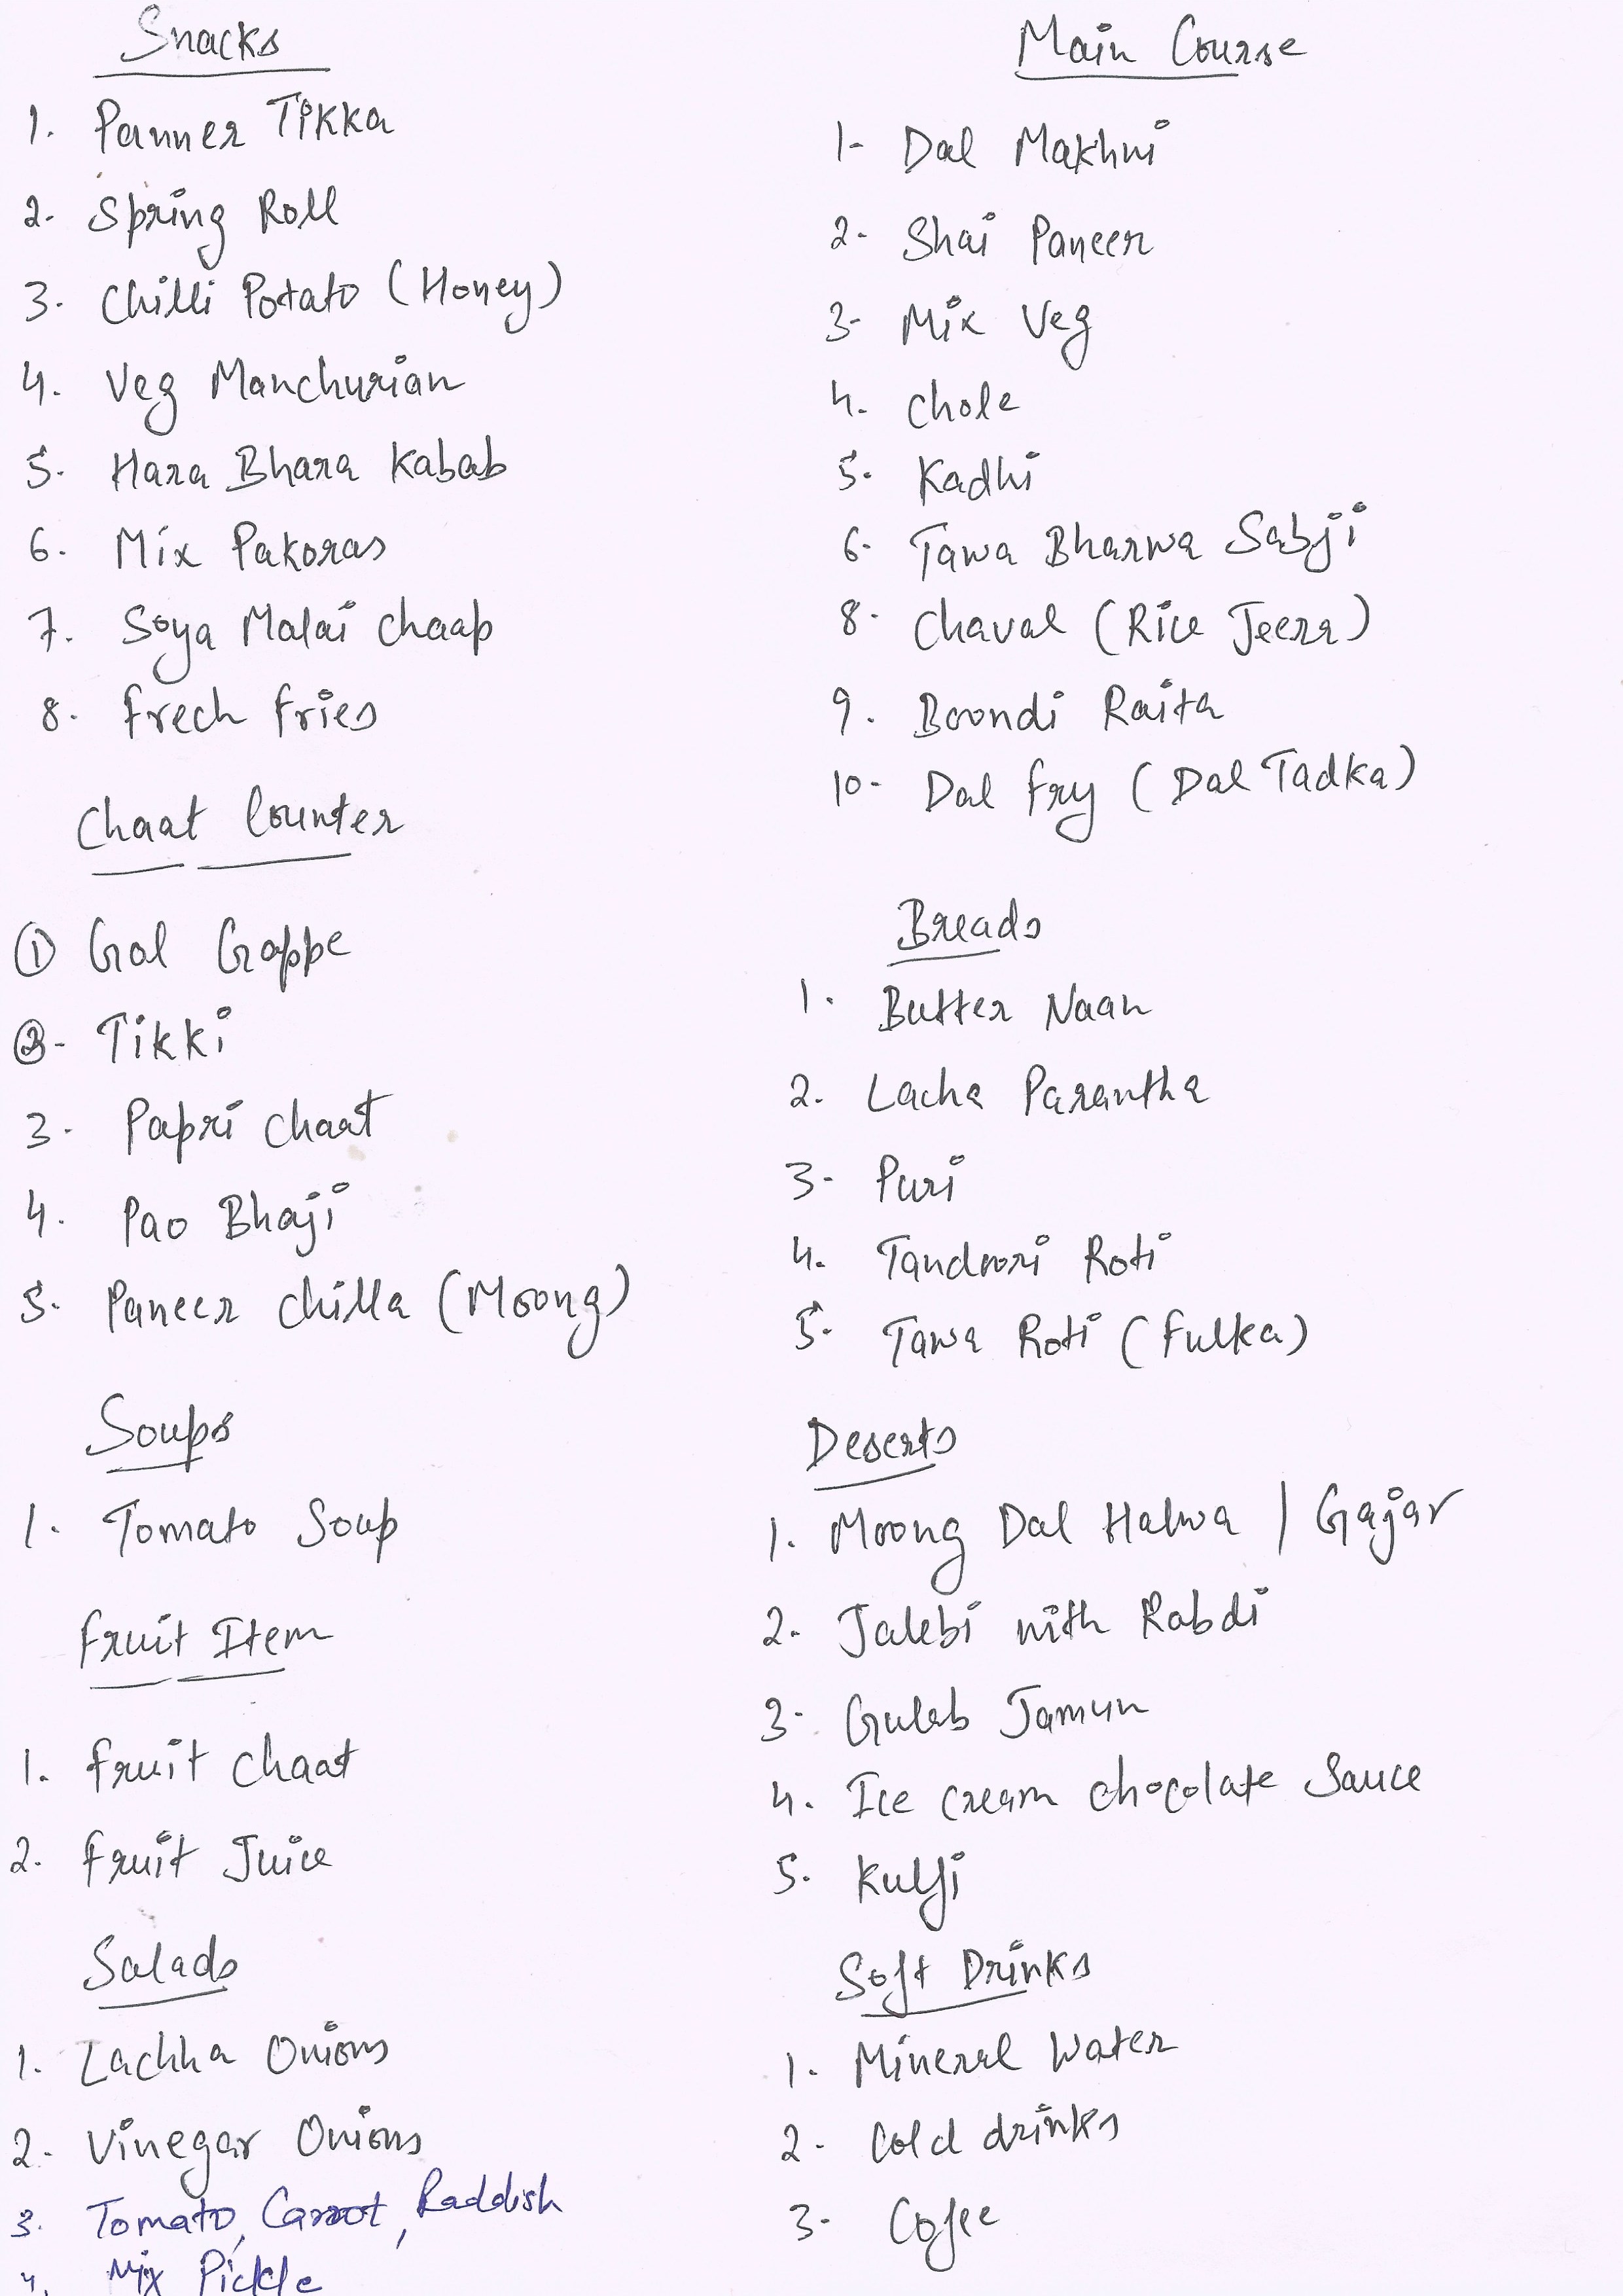 Snacks
1. Panner Tikka
2. Spring Roll
3. Chilli Potato (Honey)
4. Veg Manchurian
5. Hara Bhara Kabab
6. Mix Pakoras
7. Soya Malai Chaap
8. Frech Fries
Chaat Counter
① Gol Gappe
②- Tikki
3- Papri Chaat
4. Pao Bhaji
5- Paneer Chilla (Moong)
Soups
1. Tomato Soup
Fruit Item
1. Fruit Chaat
2. Fruit Juice
Salads
1. Lachha Onions
2- Vinegar Onions
3. Tomato, Carrot, Raddish
4. Mix Pickle
Main Course
1- Dal Makhni
2- Shai Paneer
3- Mix Veg
4. Chole
5- Kadhi
6- Tawa Bharwa Sabji
8- Chaval (Rice Jeera)
9. Boondi Raita
10- Dal Fry (Dal Tadka)
Breads
1. Butter Naan
2. Lacha Parantha
3- Puri
4. Tandoori Roti
5- Tawa Roti (Fulka)
Deserts
1. Moong Dal Halwa / Gajar
2. Jalebi with Rabdi
3- Gulab Jamun
4. Ice cream chocolate Sauce
5. Kulfi
Soft Drinks
1. Mineral Water
2- Cold drinks
3- Cofee